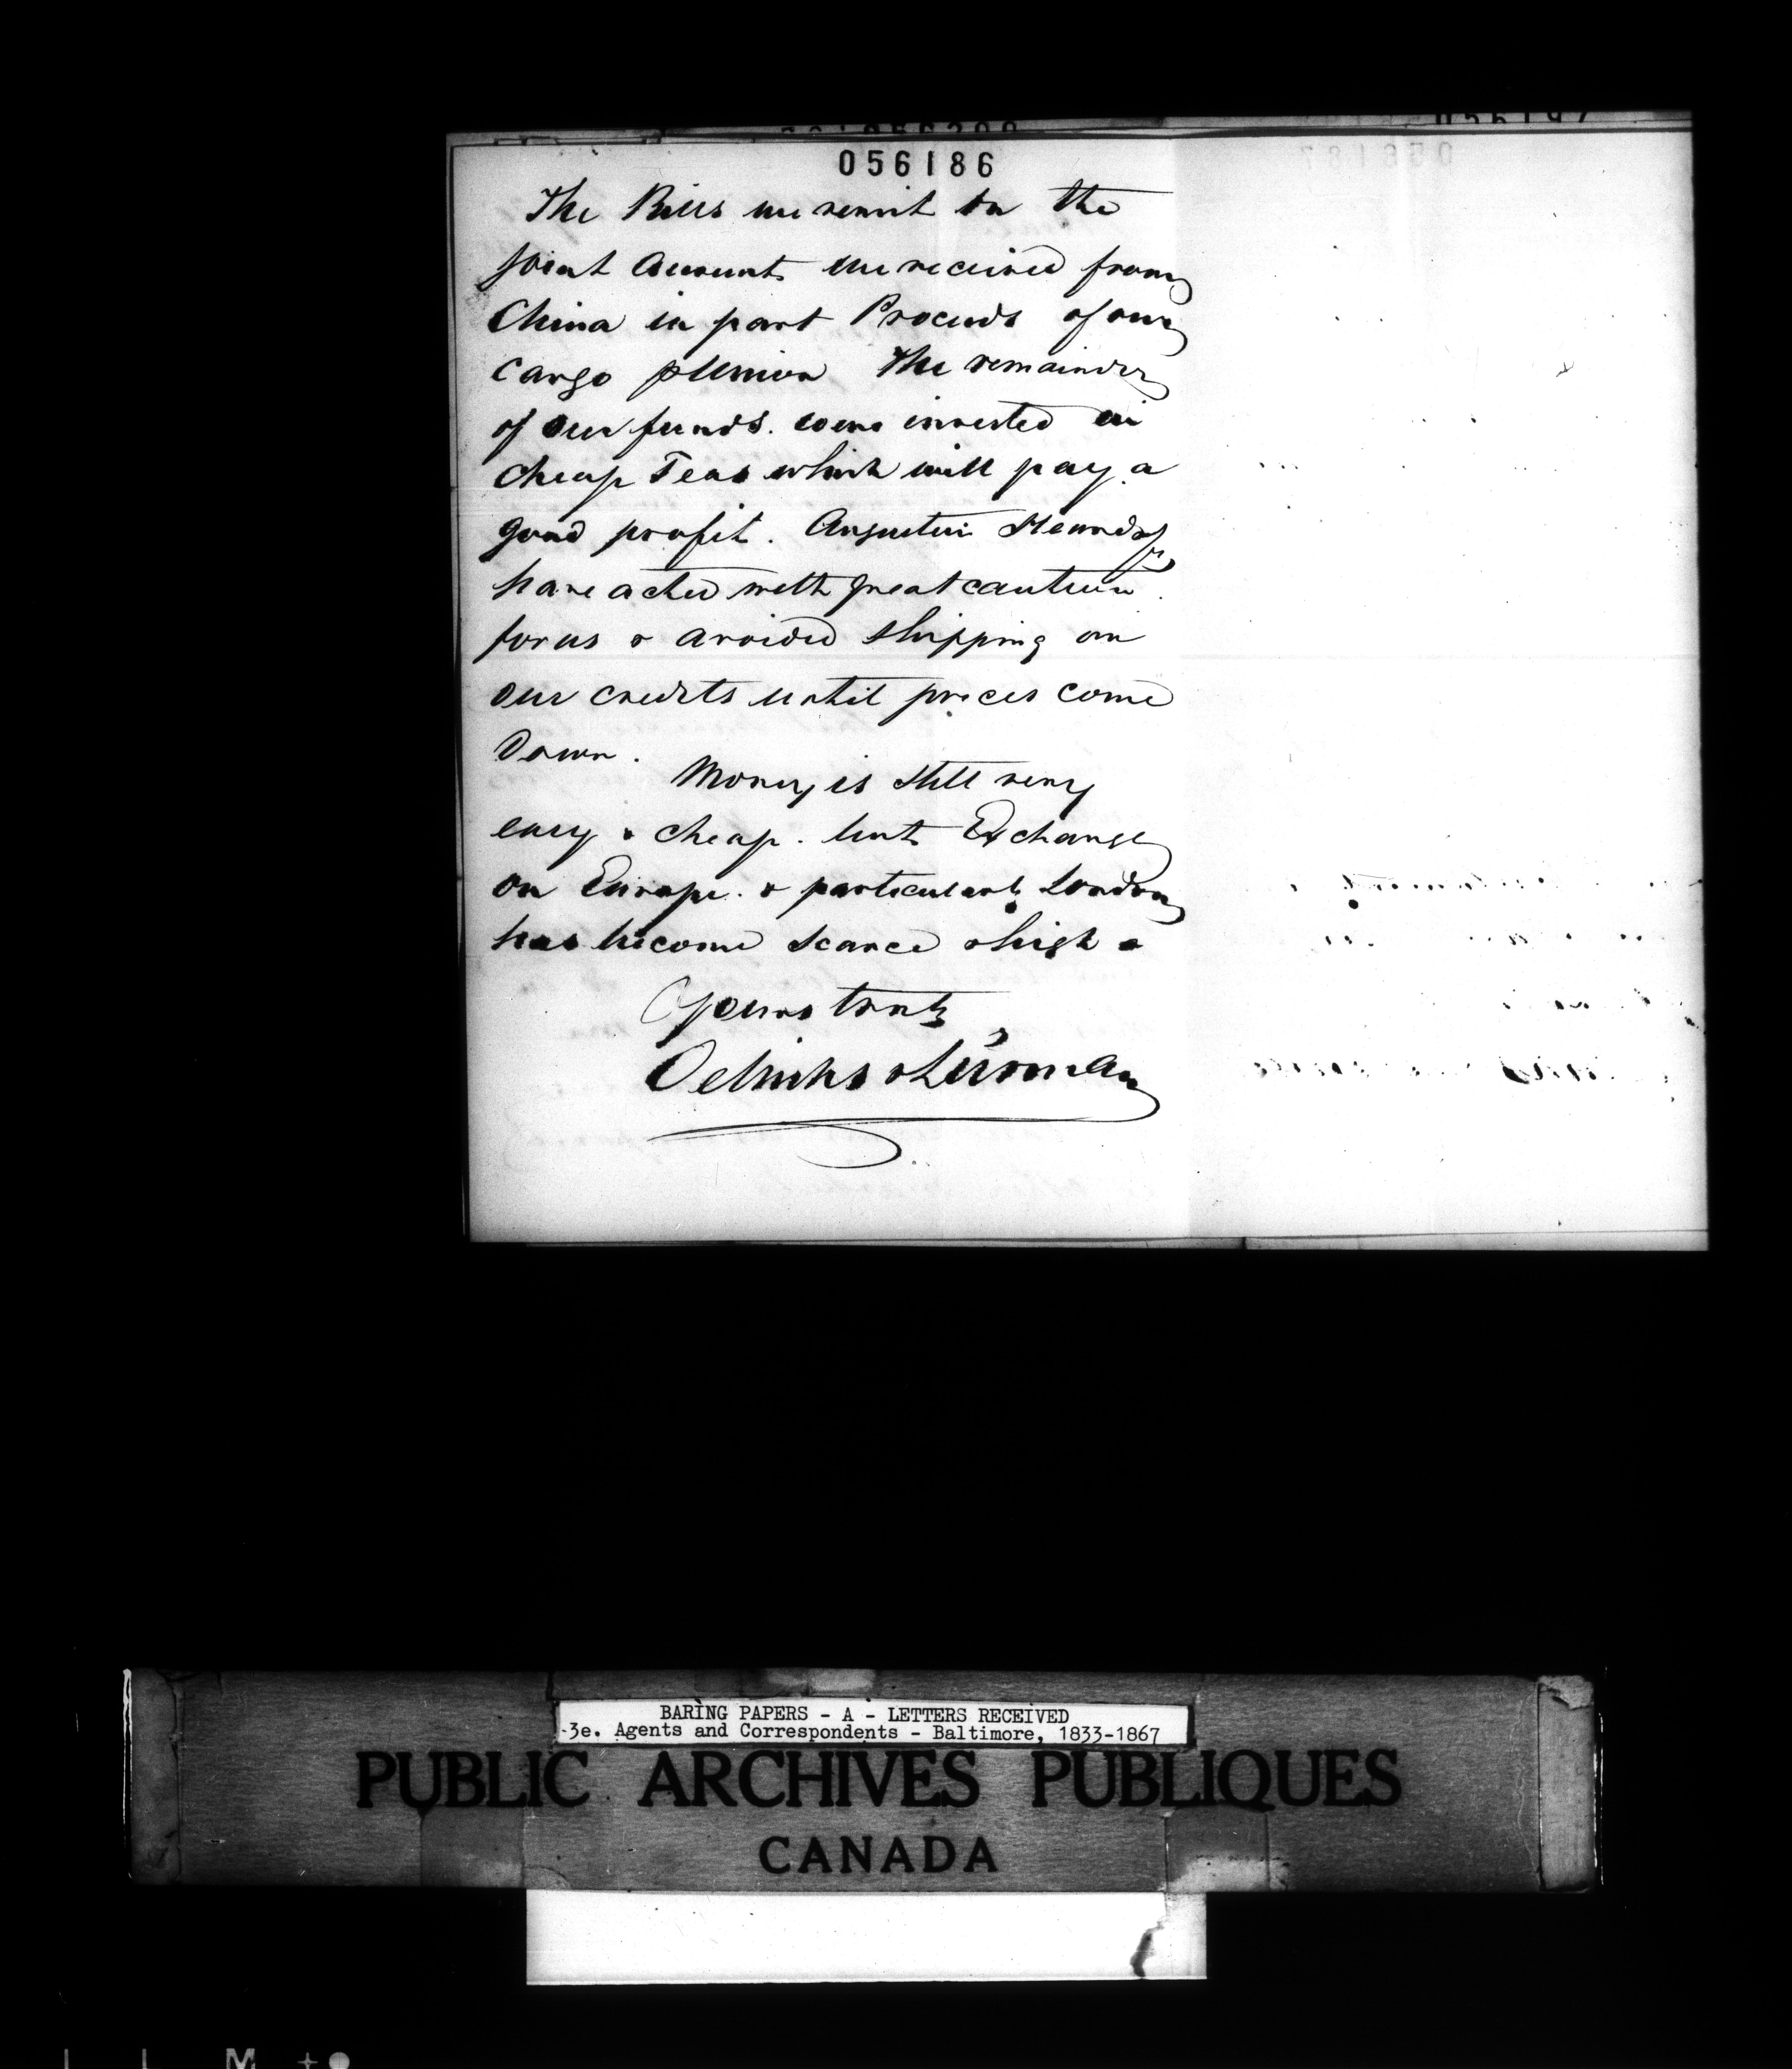 056186
The Bills we remit on the
Joint Account we received from
China in part Proceeds of our
Cargo p Union The remainder
of our funds. were invested in
cheap Teas which will pay a
good profit. Augustin Heard &
have acted with great caution
for us & avoided shipping on
our credits until prices come
down.
Money is still very
easy & cheap. but Exchange
on Europe. & particularly London
has become scarce & high &
Yours truly
Oelrichs & Lürman
BARING PAPERS - A - LETTERS RECEIVED
3e. Agents and Correspondents - Baltimore, 1833-1867
PUBLIC ARCHIVES PUBLIQUES
CANADA